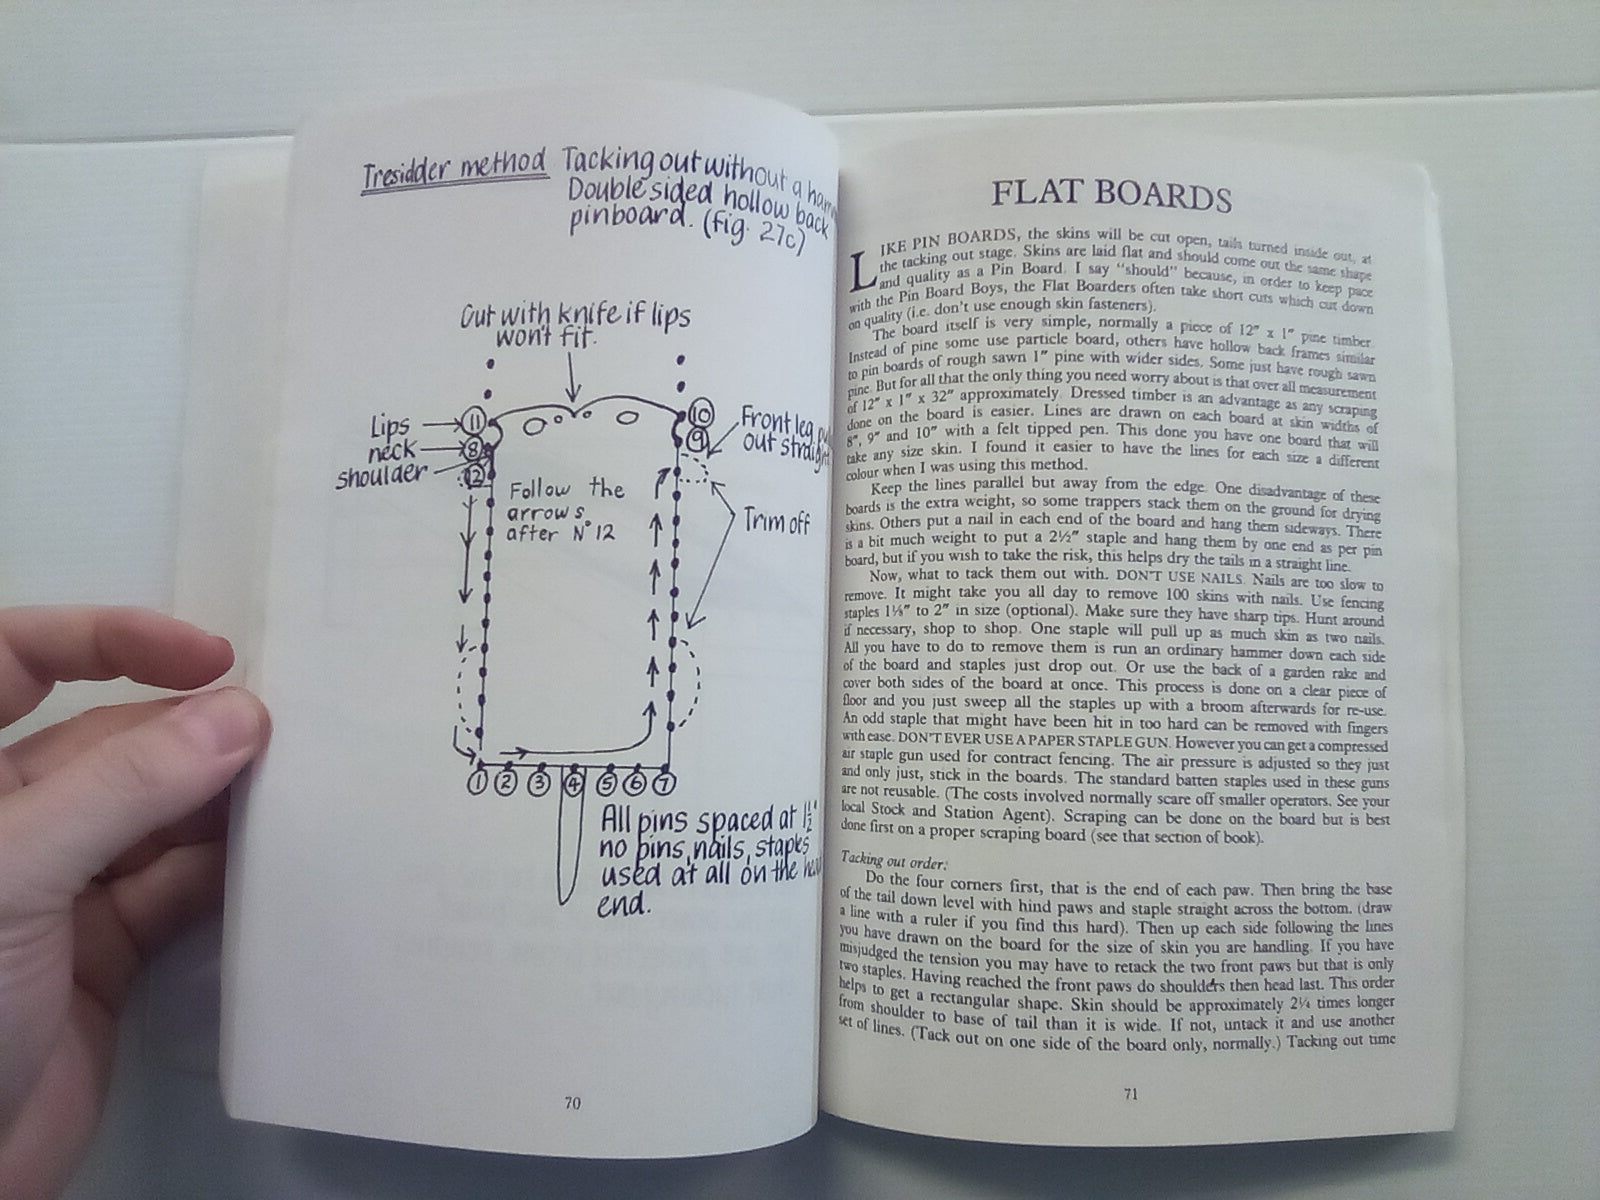 Tresidder method Tacking out without a
Double sided hollow back
pinboard. (fig. 27c)
Cut with knife if lips
won't fit.
Lips
neck
shoulder
11
8
12
10
9
Front leg
out straight
Follow the
arrows
after No 12
Trim off
1 2 3 4 5 6 7
All pins spaced at 1½"
no pins, nails, staples
used at all on the
end.
70
FLAT BOARDS
LIKE PIN BOARDS, the skins will be cut open, tails turned inside out, at
the tacking out stage. Skins are laid flat and should come out the same shape
and quality as a Pin Board. I say "should" because, in order to keep pace
with the Pin Board Boys, the Flat Boarders often take short cuts which cut down
on quality (i.e. don't use enough skin fasteners).
The board itself is very simple, normally a piece of 12" x 1" pine timber.
Instead of pine some use particle board, others have hollow back frames similar
to pin boards of rough sawn 1" pine with wider sides. Some just have rough sawn
pine. But for all that the only thing you need worry about is that over all measurement
of 12" x 1" x 32" approximately. Dressed timber is an advantage as any scraping
done on the board is easier. Lines are drawn on each board at skin widths of
8", 9" and 10" with a felt tipped pen. This done you have one board that will
take any size skin. I found it easier to have the lines for each size a different
colour when I was using this method.
Keep the lines parallel but away from the edge. One disadvantage of these
boards is the extra weight, so some trappers stack them on the ground for drying
skins. Others put a nail in each end of the board and hang them sideways. There
is a bit much weight to put a 2½" staple and hang them by one end as per pin
board, but if you wish to take the risk, this helps dry the tails in a straight line.
Now, what to tack them out with. DON'T USE NAILS. Nails are too slow to
remove. It might take you all day to remove 100 skins with nails. Use fencing
staples 1⅛" to 2" in size (optional). Make sure they have sharp tips. Hunt around
if necessary, shop to shop. One staple will pull up as much skin as two nails.
All you have to do to remove them is run an ordinary hammer down each side
of the board and staples just drop out. Or use the back of a garden rake and
cover both sides of the board at once. This process is done on a clear piece of
floor and you just sweep all the staples up with a broom afterwards for re-use.
An odd staple that might have been hit in too hard can be removed with fingers
with ease. DON'T EVER USE A PAPER STAPLE GUN. However you can get a compressed
air staple gun used for contract fencing. The air pressure is adjusted so they just
and only just, stick in the boards. The standard batten staples used in these guns
are not reusable. (The costs involved normally scare off smaller operators. See your
local Stock and Station Agent). Scraping can be done on the board but is best
done first on a proper scraping board (see that section of book).
Tacking out order:
Do the four corners first, that is the end of each paw. Then bring the base
of the tail down level with hind paws and staple straight across the bottom. (draw
a line with a ruler if you find this hard). Then up each side following the lines
you have drawn on the board for the size of skin you are handling. If you have
misjudged the tension you may have to retack the two front paws but that is only
two staples. Having reached the front paws do shoulders then head last. This order
helps to get a rectangular shape. Skin should be approximately 2¼ times longer
from shoulder to base of tail than it is wide. If not, untack it and use another
set of lines. (Tack out on one side of the board only, normally.) Tacking out time
71